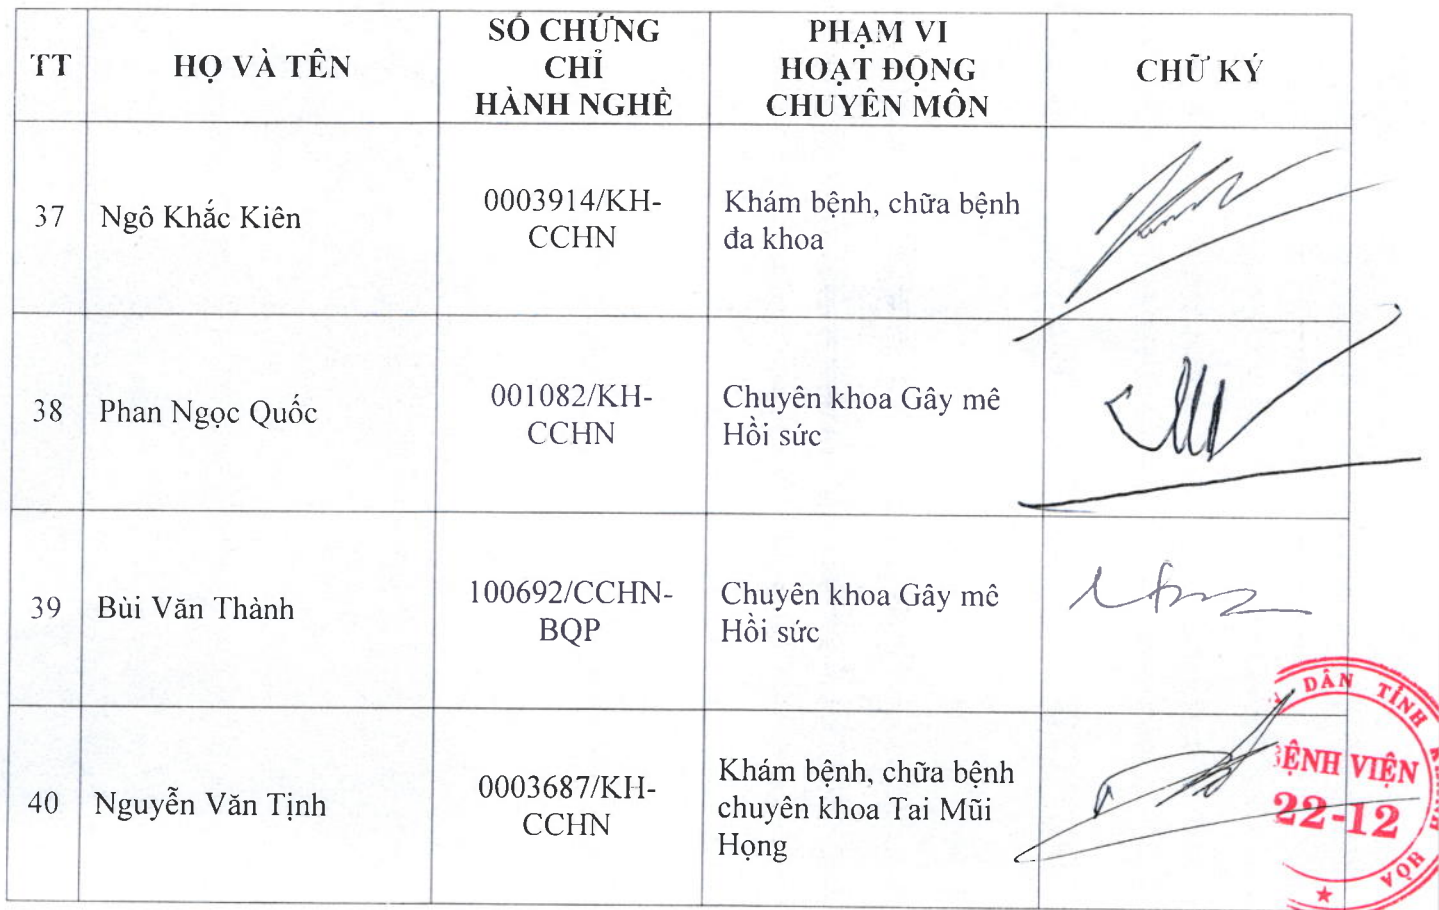 TT
HỌ VÀ TÊN
SỐ CHỨNG
CHỈ
HÀNH NGHỀ
PHẠM VI
HOẠT ĐỘNG
CHUYÊN MÔN
CHỮ KÝ
37
Ngô Khắc Kiên
0003914/KH-
CCHN
Khám bệnh, chữa bệnh
đa khoa
38
Phan Ngọc Quốc
001082/KH-
CCHN
Chuyên khoa Gây mê
Hồi sức
39
Bùi Văn Thành
100692/CCHN-
BQP
Chuyên khoa Gây mê
Hồi sức
40
Nguyễn Văn Tịnh
0003687/KH-
CCHN
Khám bệnh, chữa bệnh
chuyên khoa Tai Mũi
Họng
DÂN TỈNH KHÁNH HÒA
BỆNH VIỆN
22-12